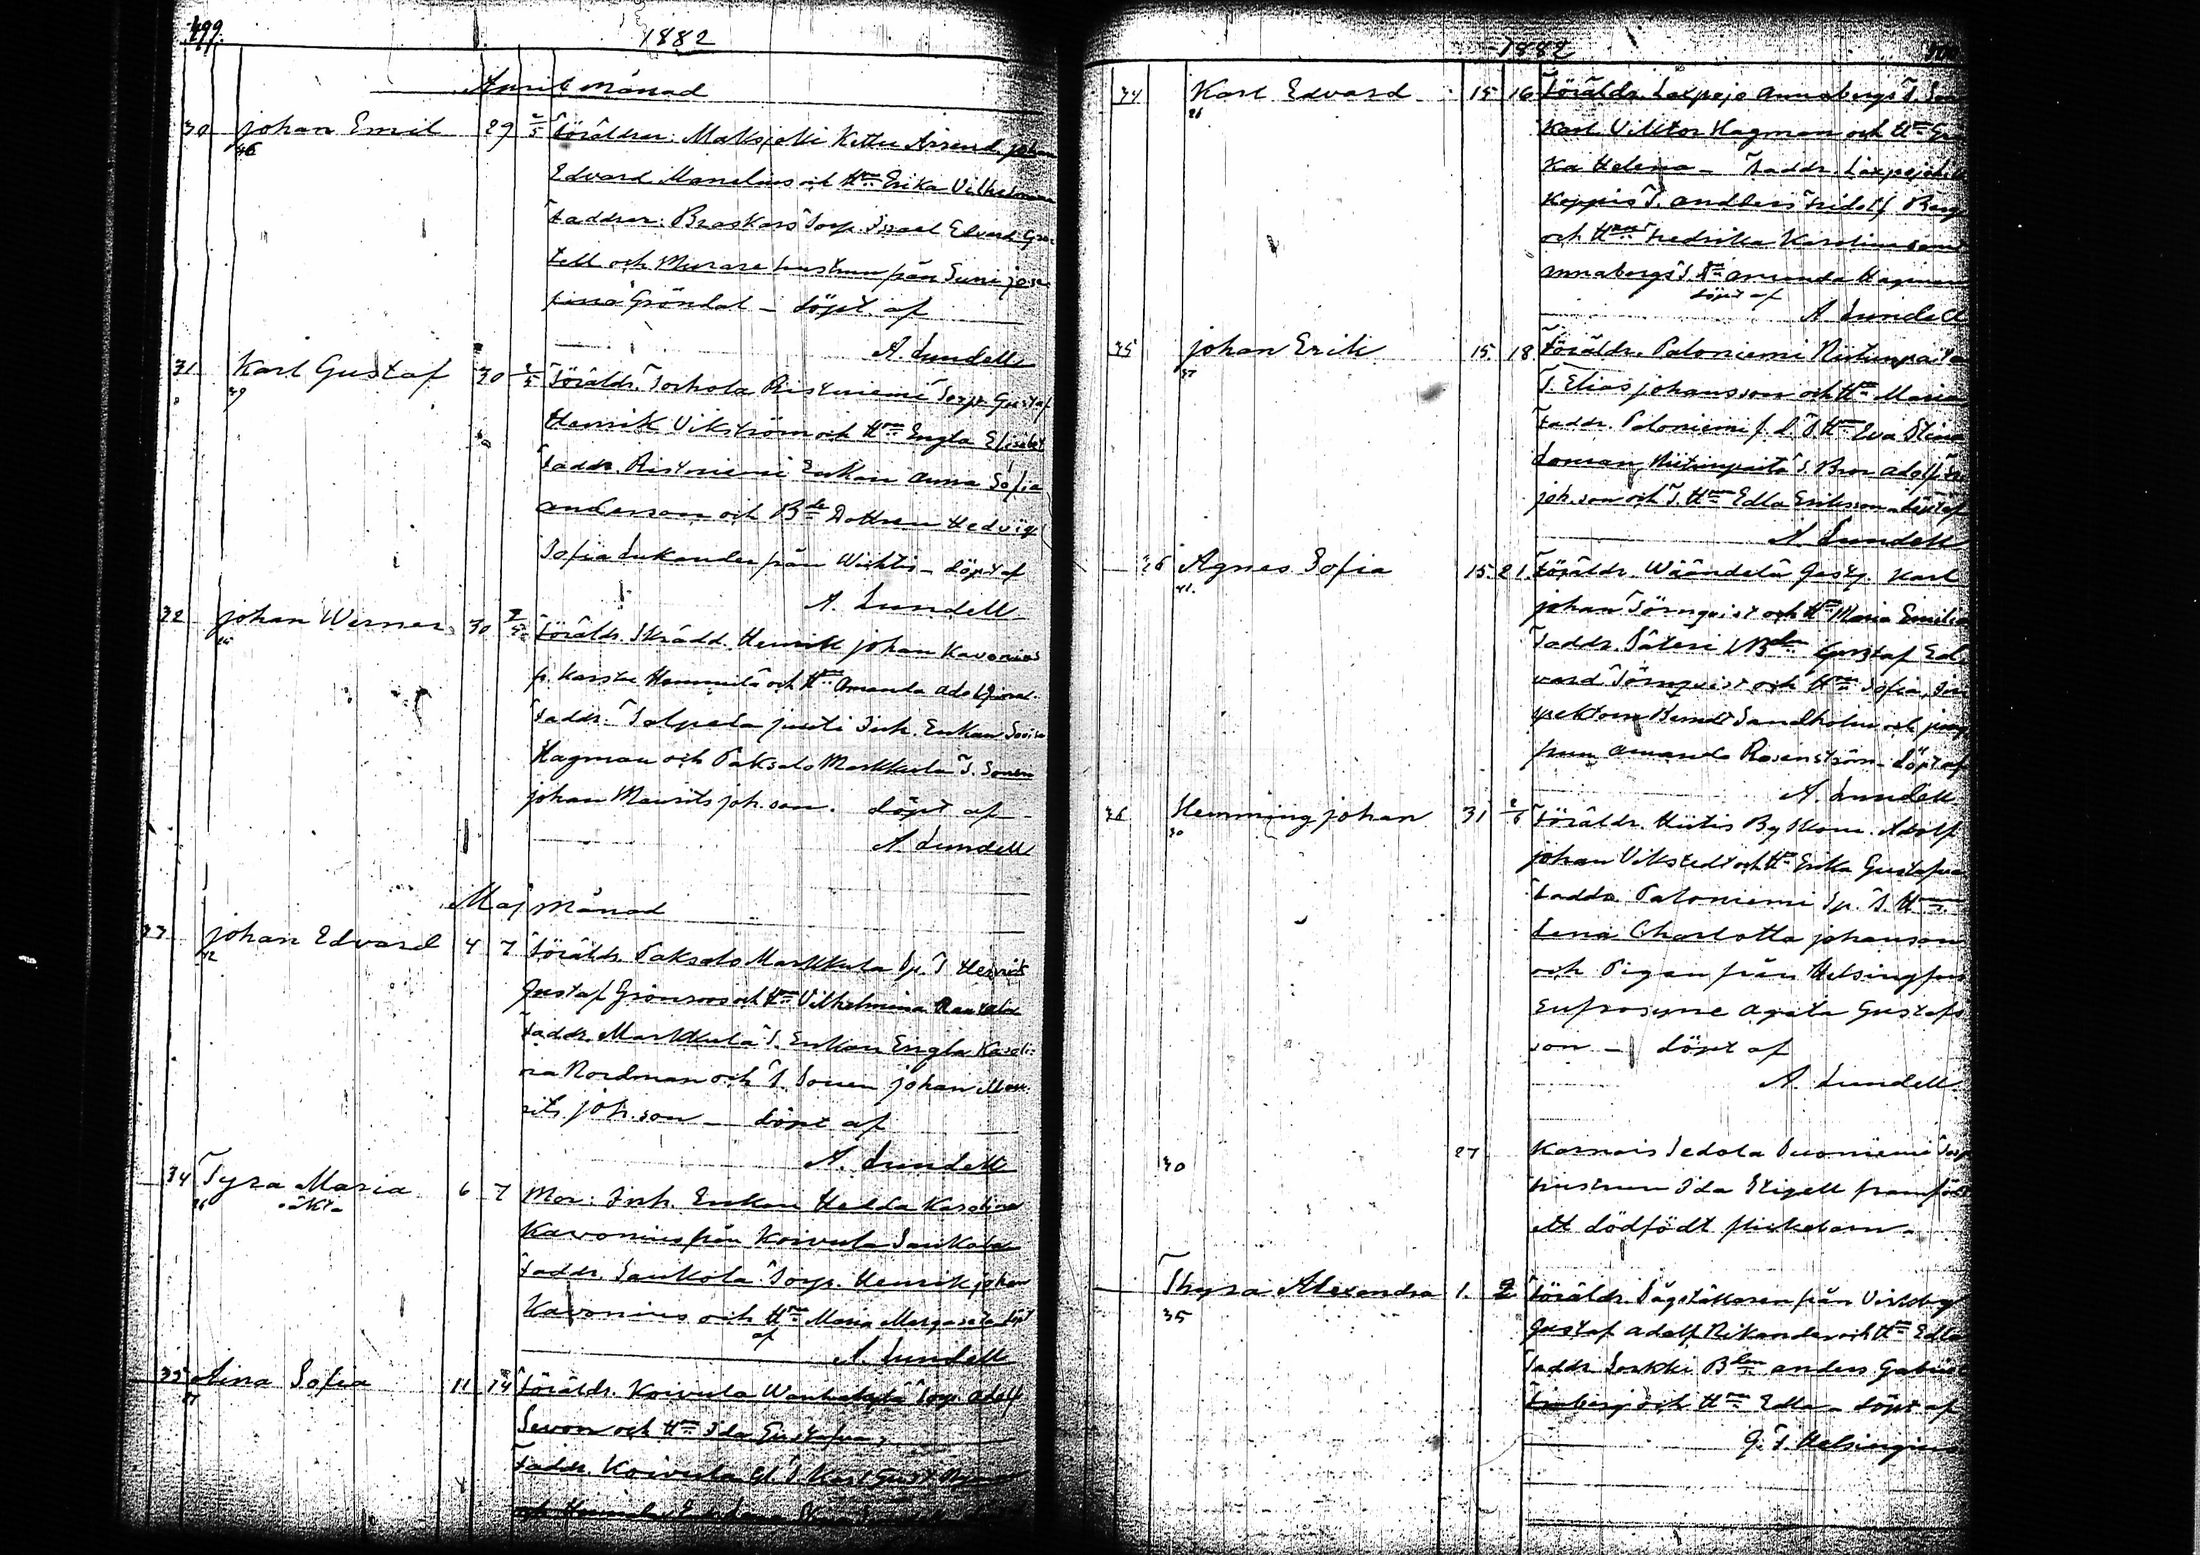 499.
1882
April månad
30 Johan Emil 29 2/5 Föräldrar: Maksjoki Kettu Arrend. Johan
46
Edvard Manelius och Hu Erika Vilhelmina
Faddrar: Braskars Torp. Israel Edvard Grö-
tell och Murare hustrun från Suni Jose
fina Gröndal – döpt af
A. Lundell
31 Karl Gustaf 30 2/5 Föräldr. Torhola Ristniemi Torp. Gustaf
39
Henrik Vikström och Hu Engla Elisabet
Faddr. Ristniemi Enkan Anna Sofia
Anderson och Bde Dottren Hedvig
Sofia Lukander från Wichtis – döpt af
A. Lundell
32 Johan Werner 30 7/5 Föräldr. Skrädd. Henrik Johan Kavonius
fr. Karstu Hemmilä och Hu Amanda Adolfina
Faddr. Talpela Inh. Enkan Lovisa
Hagman och Paksalo Markkula T. Sonen
Johan Maurits Joh.son. döpt af
A. Lundell
Maj månad
33 Johan Edvard 4 7 Föräldr. Paksalo Markkula Sp. T. Henrik
42
Gustaf Grönroos och Hu Vilhelmina
Faddr. Markkula T. Enkan Engla Karoli-
na Nordman och T. Sonen Johan Mau
rits Joh.son – döpt af
A. Lundell
34 Tyra Maria 6 7 Mor: Inh. Enkan Hedda Karolina
oäkta
Kavonius från Koivula Saukola
Faddr. Saukola Torp. Henrik Johan
Kavonius och Hu Maria Margareta döpt
af
A. Lundell
35 Aina Sofia 11 14 Föräldr. Koivula Wanhakylä Torp. Adolf
Sevon och Hu Ida Gustafva,
Faddr. Koivula T. Karl Gust.
1882
34 Karl Edvard 15 16 Föräldr. Laxpojo Annabergs T.
26
Karl Viktor Hagman och Hu Eri
ka Helena – Faddr.
Koppis T. Anders Fridolf Berg
och Hu Fredrika Karolina samt
Annabergs T. Dr Amanda Hagman
döpt af
A. Lundell
35 Johan Erik 15 18 Föräldr. Paloniemi Niitunpaita
T. Elias Johansson och Hu Maria
Faddr. Paloniemi f. d. T. Hu Eva Stina
Niitunpaita T. Bror Adolf
Joh.son och T. Hu Edla Erikson – döpt af
A. Lundell
36 Agnes Sofia 15 21 Föräldr. Wäändelä Gästg. Karl
41.
Johan Törnqvist och Hu Maria Emilia
Faddr. Päteri Bden Gustaf Ed-
vard Törnqvist och Hu Sofia, Ins
pektoren Berndt Sandholm och jung
frun Amanda Rosenström – döpt af
A. Lundell
36 Hemming Johan 31 2/6 Föräldr. Hiitis By Skom. Adolf
30
Johan Vikstedt och Hu Erika Gustafva
Faddr. Paloniemi Sp. T. Hu
Lena Charlotta Johanson
och Pigan från Helsingfors
Eufrosyne Agata Gustafs
son – döpt af
A. Lundell
30 27 Karnais Sedola Torp
hustrun Ida Stigell framfödt
ett dödfödt flickebarn –
Thyra Alexandra 1. 2 Föräldr. från Virkby
35
Gustaf Adolf Nikander och Hu Edla
Faddr. Bden Anders Gabriel
och Hu Edla – döpt af
G. T. Helsingius